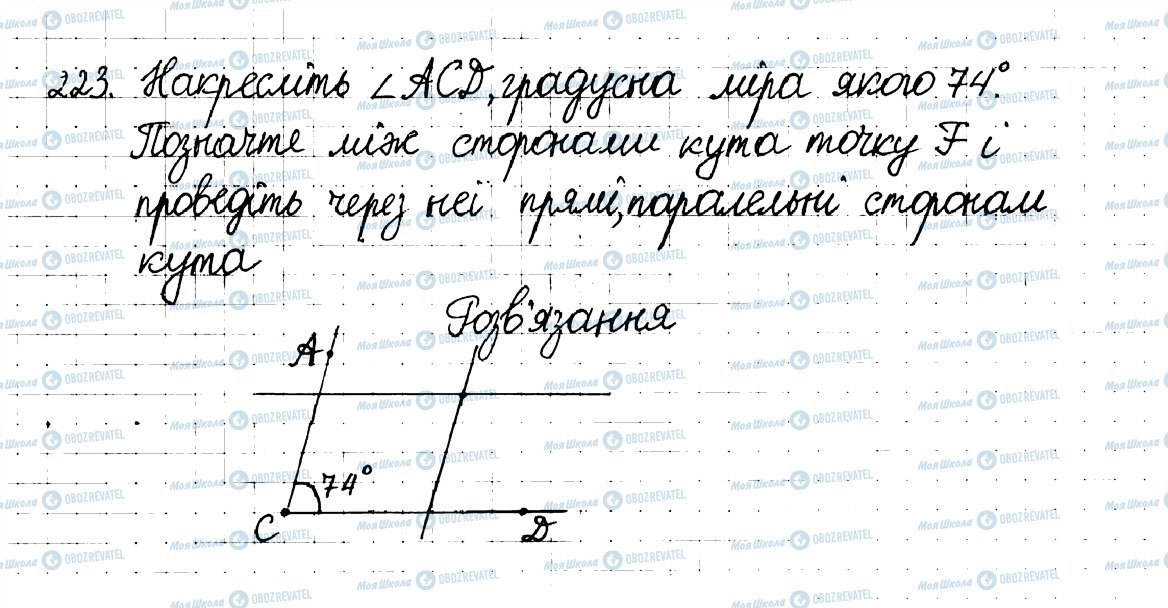 223. Накресліть ∠ACD, градусна міра якого 74°.
Позначте між сторонами кута точку F і
проведіть через неї прямі, паралельні сторонам
кута
Розв'язання
A
74°
C
D
Моя Школа OBOZREVATEL